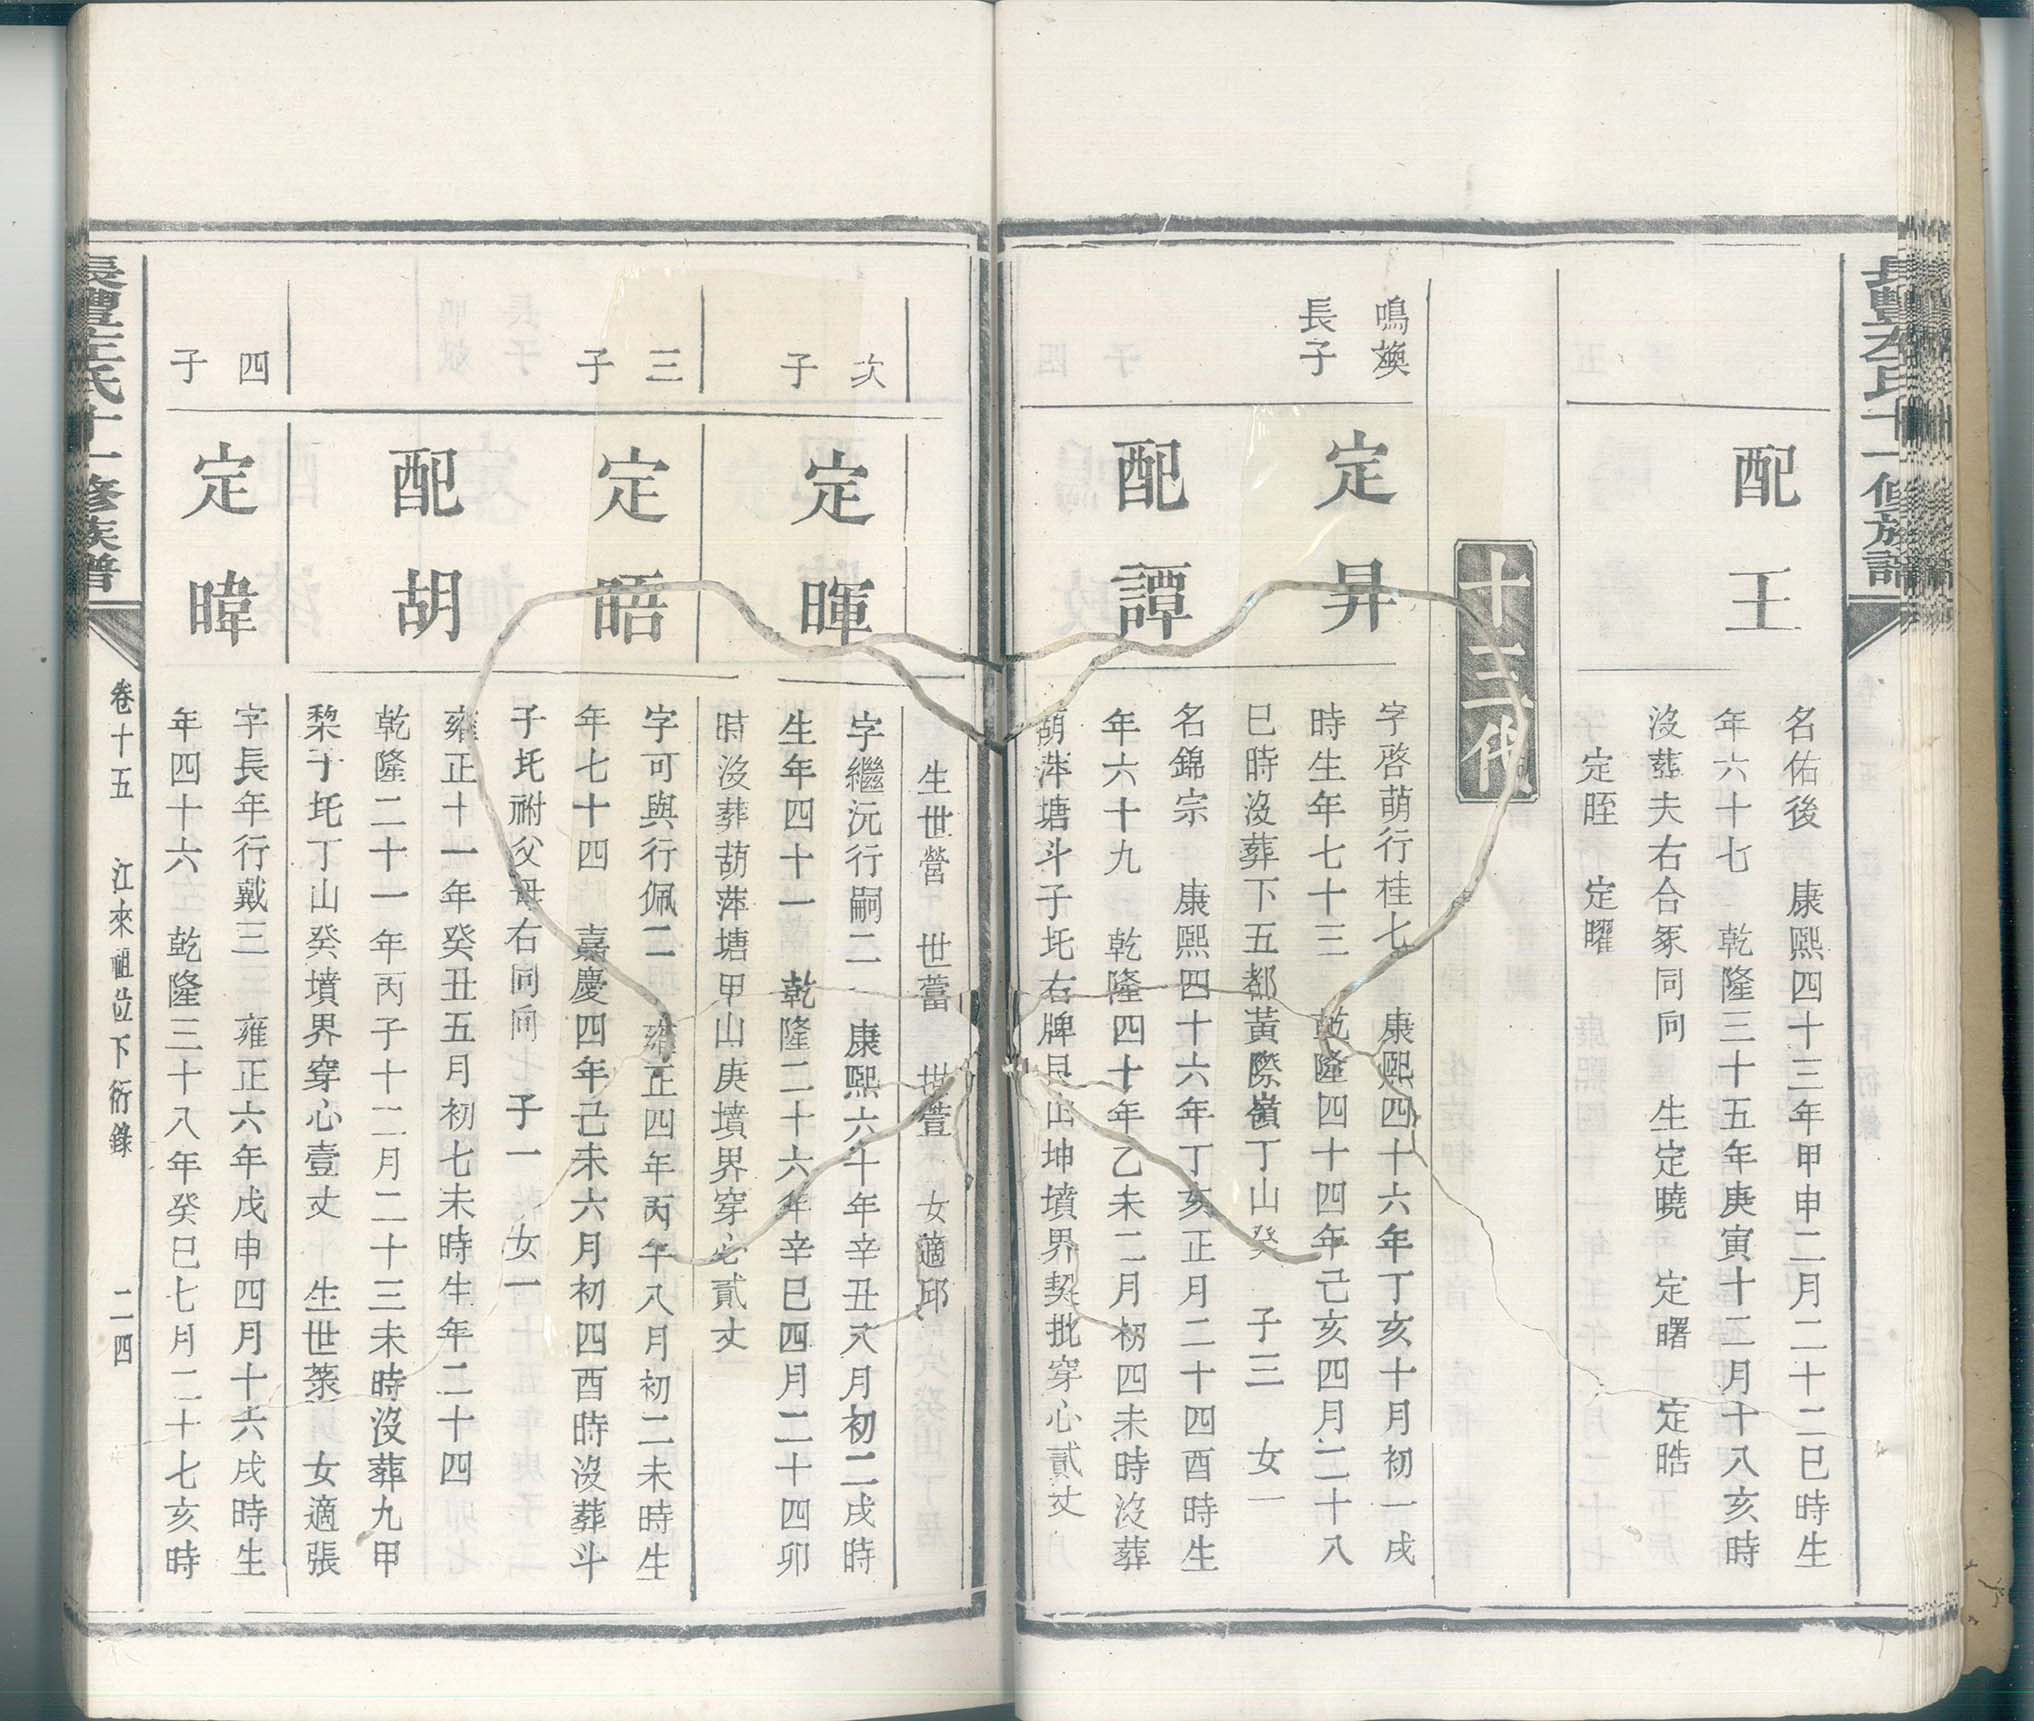 配王
名佑後 康熙四十三年甲申二月二十二巳時生
年六十七 乾隆三十五年庚寅十二月十八亥時
沒葬夫右合冢同向 生定曉 定曙 定晧
定晊 定曜
十三代
鳴煥
長子
定昇
字啓萌行桂七 康熙四十六年丁亥十月初一戌
時生年七十三 乾隆四十四年己亥四月二十八
巳時沒葬下五都黃際嶺丁山癸 子三 女一
配譚
名錦宗 康熙四十六年丁亥正月二十四酉時生
年六十九 乾隆四十年乙未二月初四未時沒葬
葫萍塘斗子圫右牌艮山坤墳界契批穿心貳丈
生世營 世蕾 世萱 女適邱
次子
定暉
字繼沅行嗣二 康熙六十年辛丑六月初二戌時
生年四十一 乾隆二十六年辛巳四月二十四卯
時沒葬葫萍塘甲山庚墳界穿心貳丈
三子
定晤
字可與行佩二 雍正四年丙午八月初二未時生
年七十四 嘉慶四年己未六月初四酉時沒葬斗
子圫祔父母右同向 子一 女一
配胡
雍正十一年癸丑五月初七未時生年二十四
乾隆二十一年丙子十二月二十三未時沒葬九甲
梨子圫丁山癸墳界穿心壹丈 生世蘂 女適張
四子
定暐
字長年行戴三 雍正六年戊申四月十六戌時生
年四十六 乾隆三十八年癸巳七月二十七亥時
氏十一修族譜
卷十五 江來祖位下衍錄 二四